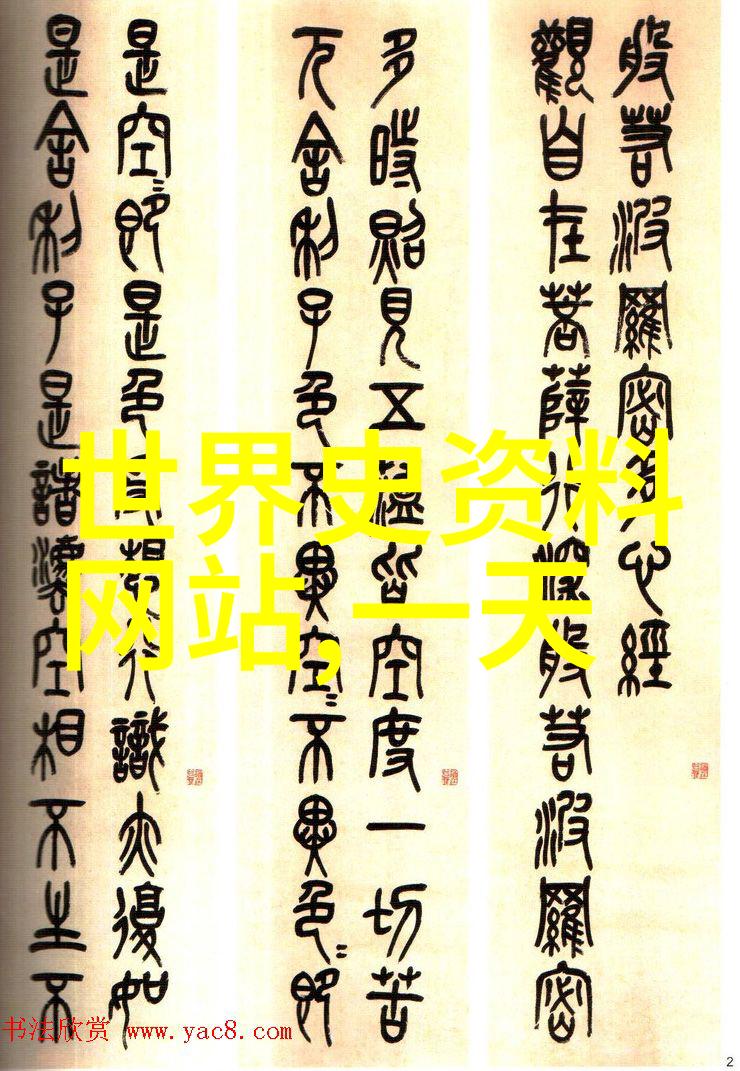 般若波羅密多心經
觀自在菩薩行深般若波羅密
多時照見五蘊皆空度一切苦
厄舍利子色不異空〻不異色〻即
是空〻即是色受想行識亦復如
是舍利子是諸法空相不生不
世界史资料
网站,一天
书法欣赏 www.yac8.com
2